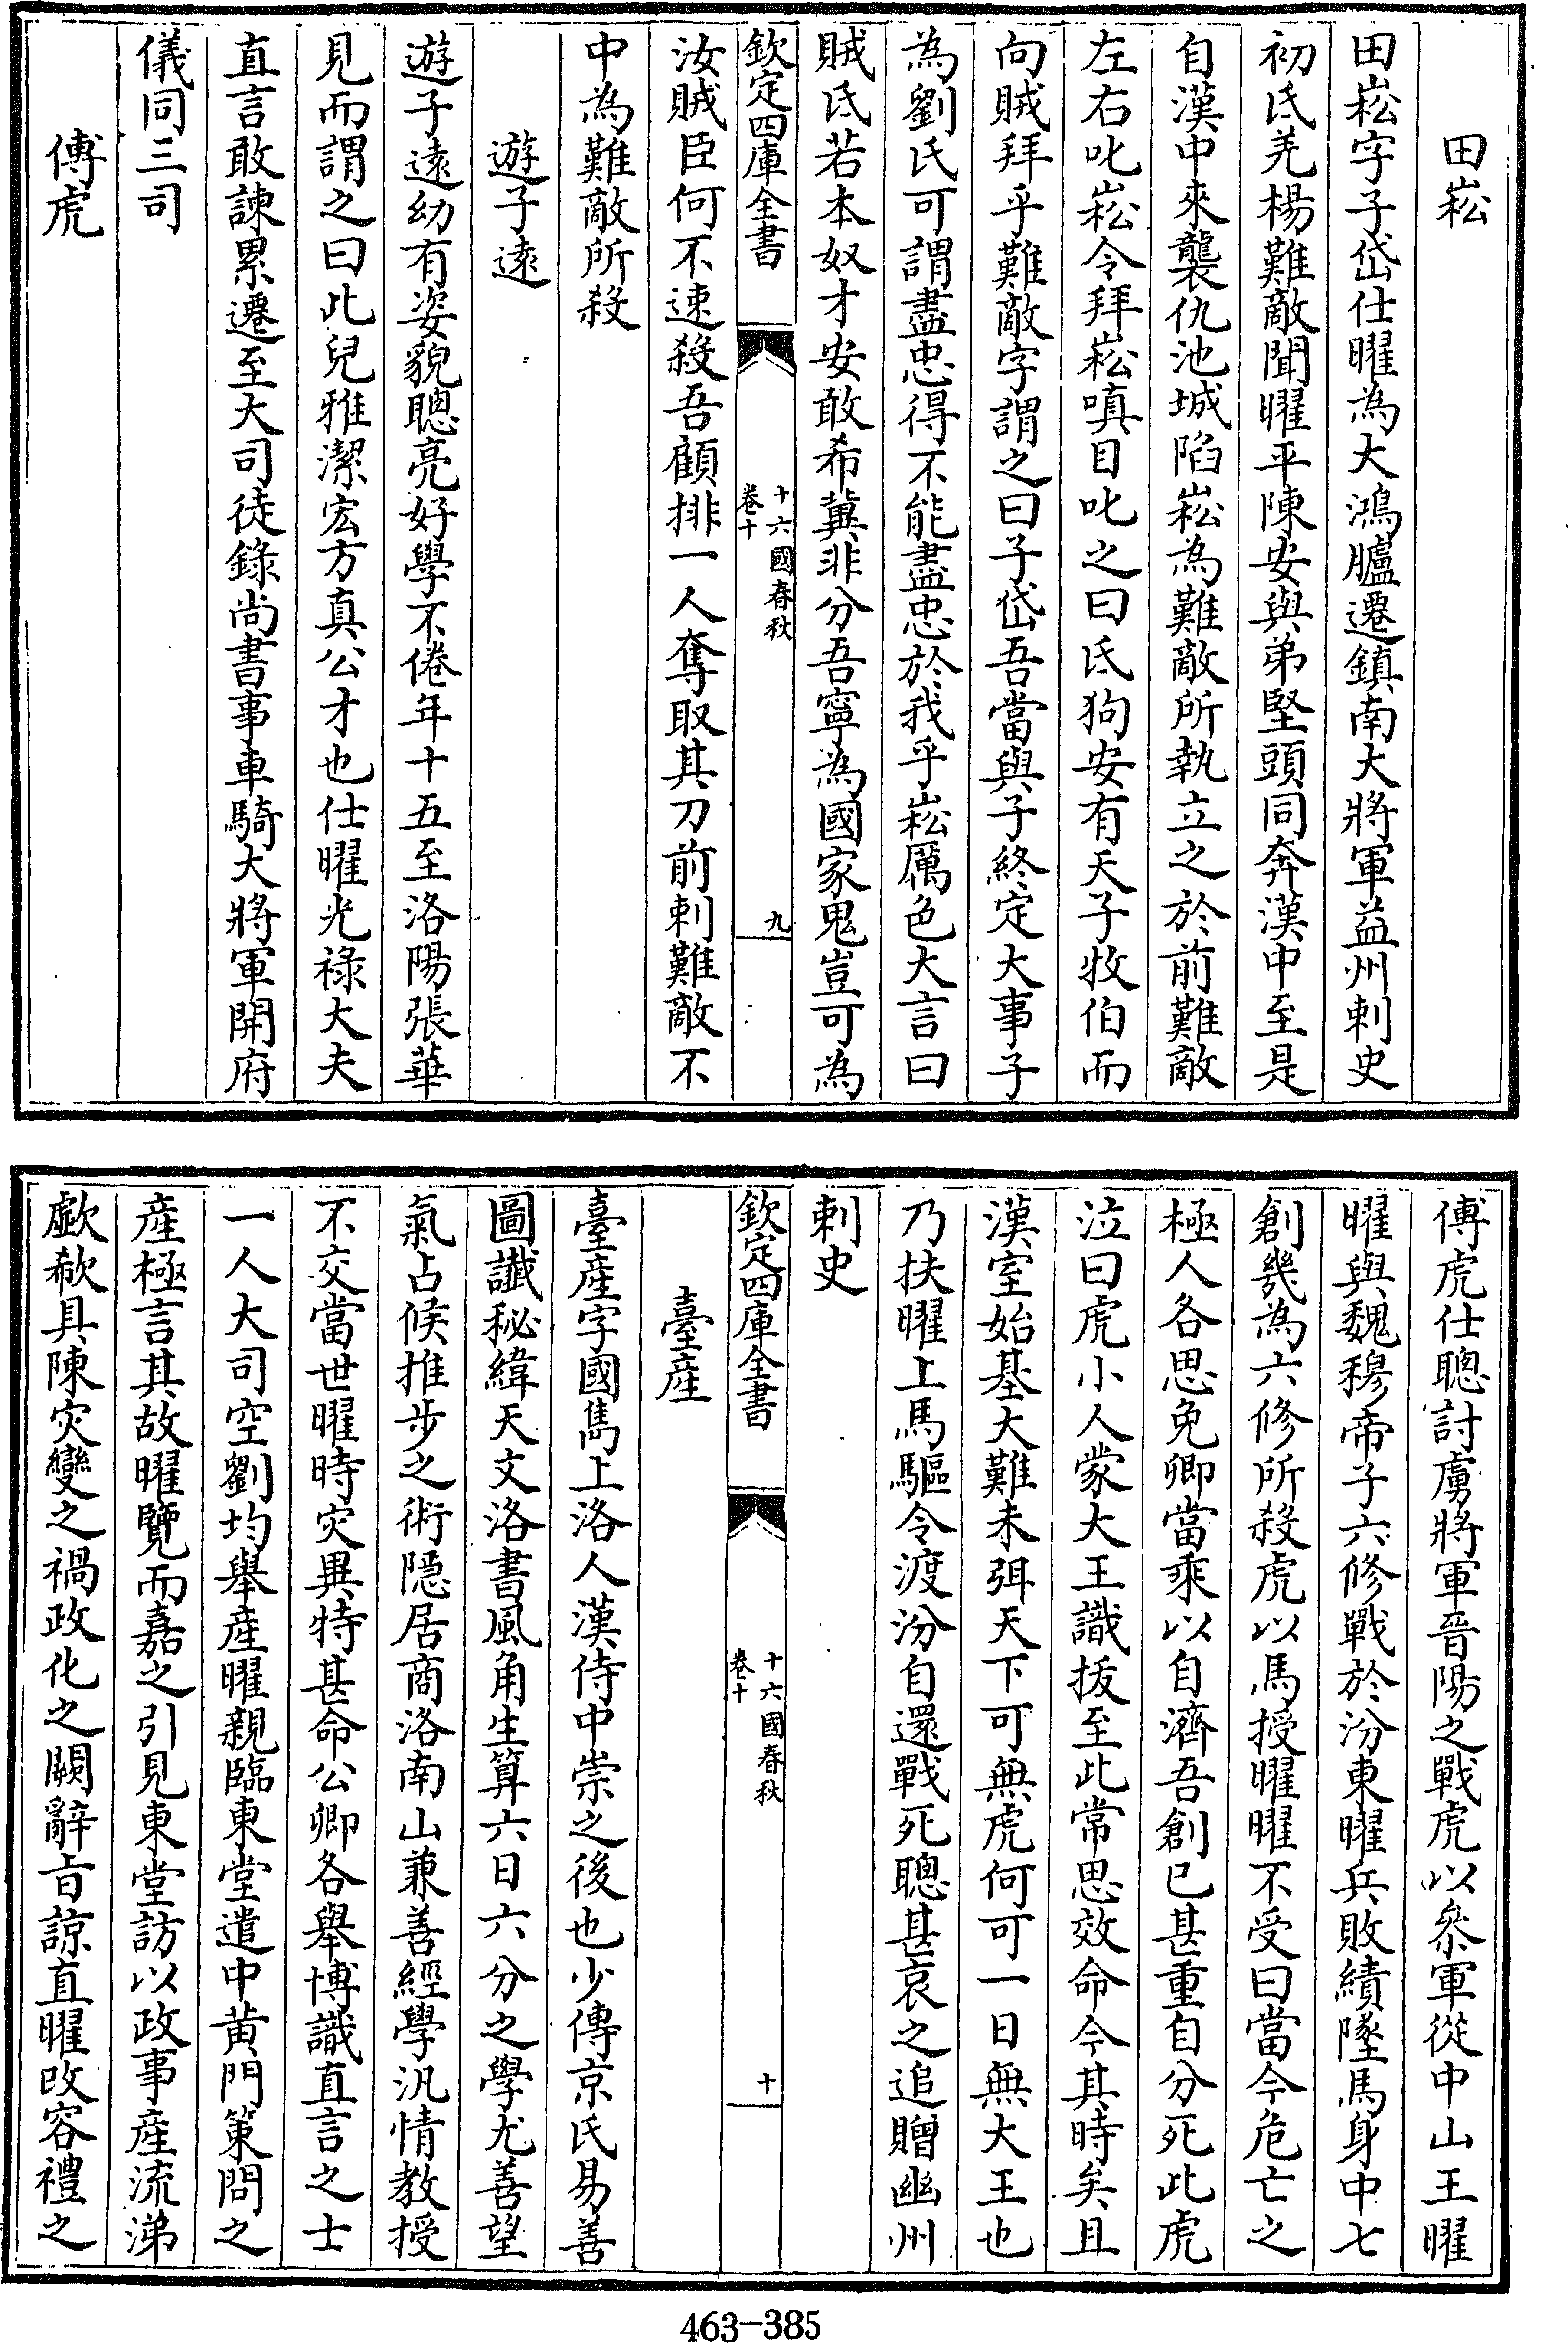 田崧
田崧字子岱仕曜為大鴻臚遷鎮南大將軍益州刺史
初氐羌楊難敵聞曜平陳安與弟堅頭同奔漢中至是
自漢中來襲仇池城陷崧為難敵所執立之於前難敵
左右叱崧令拜崧嗔目叱之曰氐狗安有天子牧伯而
向賊拜乎難敵字謂之曰子岱吾當與子終定大事子
為劉氏可謂盡忠得不能盡忠於我乎崧厲色大言曰
賊氐若本奴才安敢希冀非分吾寧為國家鬼豈可為
欽定四庫全書 十六國春秋 卷十 九
汝賊臣何不速殺吾顧排一人奪取其刀前刺難敵不
中為難敵所殺
遊子遠
遊子遠幼有姿貌聰亮好學不倦年十五至洛陽張華
見而謂之曰此兒雅潔宏方真公才也仕曜光祿大夫
直言敢諫累遷至大司徒錄尚書事車騎大將軍開府
儀同三司
傅虎
傅虎仕聰討虜將軍晉陽之戰虎以叅軍從中山王曜
曜與魏穆帝子六修戰於汾東曜兵敗績墜馬身中七
創幾為六修所殺虎以馬授曜曜不受曰當今危亡之
極人各思免卿當乘以自濟吾創已甚重自分死此虎
泣曰虎小人蒙大王識拔至此常思效命今其時矣且
漢室始基大難未弭天下可無虎何可一日無大王也
乃扶曜上馬驅令渡汾自還戰死聰甚哀之追贈幽州
刺史
欽定四庫全書 十六國春秋 卷十 十
臺産
臺産字國雋上洛人漢侍中崇之後也少傳京氏易善
圖讖秘緯天文洛書風角生算六日六分之學尤善望
氣占候推步之術隱居商洛南山兼善經學汎情教授
不交當世曜時灾異特甚命公卿各舉博識直言之士
一人大司空劉均舉産曜親臨東堂遣中黄門策問之
産極言其故曜覽而嘉之引見東堂訪以政事産流涕
歔欷具陳灾變之禍政化之闕辭㫖諒直曜改容禮之
463-385